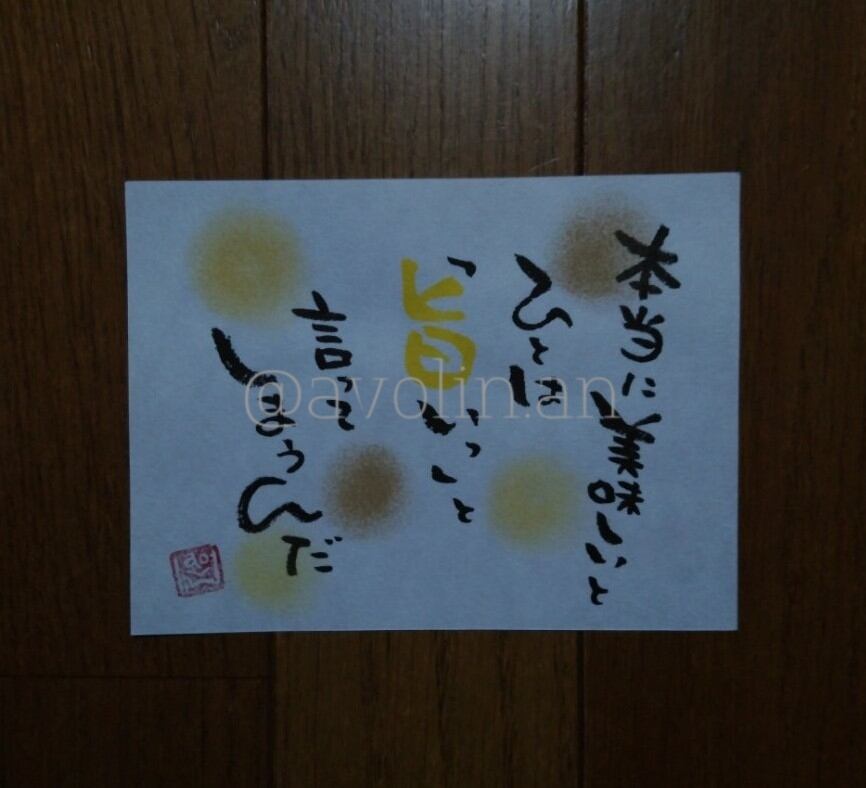 本当に美味しいと
ひとは
「旨いっ」と
言って
しまうんだ
@avolin.an